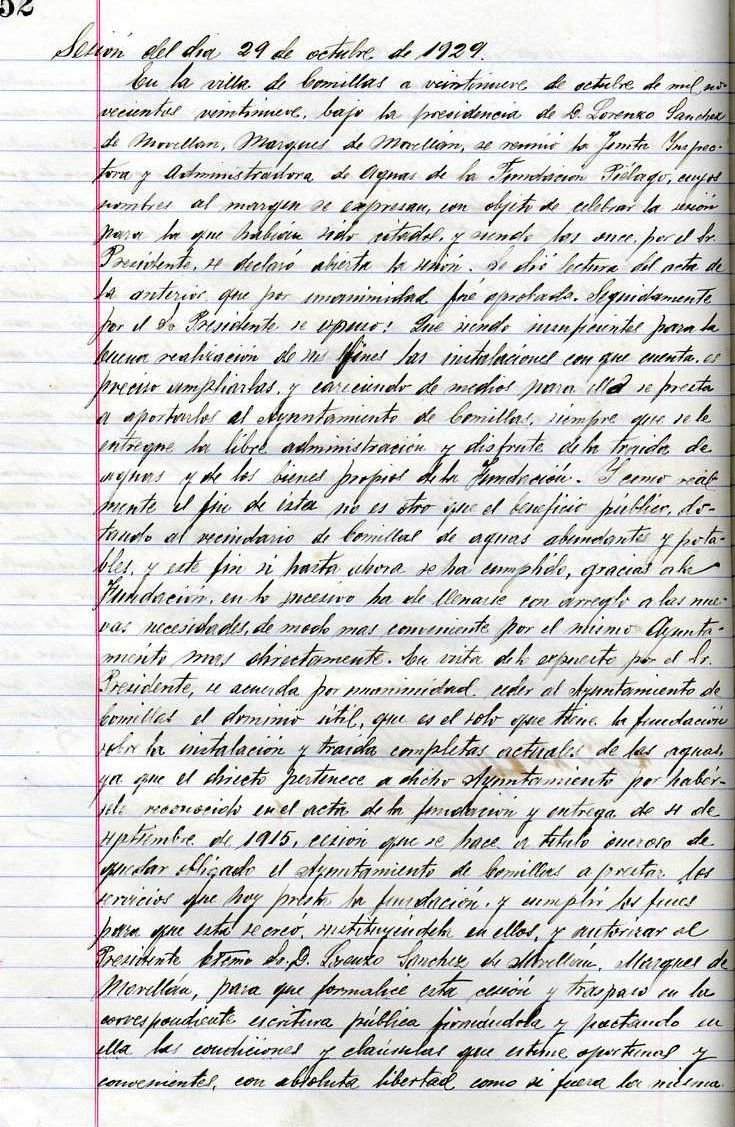 52
Sesión del dia 29 de octubre de 1929.
En la villa de Comillas a veintinueve de octubre de mil no-
vecientos veintinueve, bajo la presidencia de D. Lorenzo Sanchez
de Movellan, Marques de Movellán, se reunió la Junta Inspec-
tora y Administradora de Aguas de la Fundacion Piélago, cuyos
nombres al margen se expresan, con objeto de celebrar la sesión
para la que habian sido citados, y siendo las once, por el Sr.
Presidente, se declaró abierta la sesión. Se dió lectura del acta de
la anterior que por unanimidad fué aprobada. Seguidamente
por el Sr. Presidente se expuso: Que siendo insuficientes para la
buena realización de sus fines las instalaciones con que cuenta, es
preciso ampliarlas, y careciendo de medios para ello se presta
a aportarlos el Ayuntamiento de Comillas, siempre que se le
entregue la libre administración y disfrute de la traida de
aguas y de los bienes propios de la Fundación. Y como real-
mente el fin de ésta no es otro que el beneficio público, do-
tando al vecindario de Comillas de aguas abundantes y pota-
bles, y este fin si hasta ahora se ha cumplido, gracias a la
Fundación, en lo sucesivo ha de llenarse con arreglo a las nue-
vas necesidades, de modo mas conveniente por el mismo Ayunta-
miento mas directamente. En vista de lo expuesto por el Sr.
Presidente, se acuerda por unanimidad ceder al Ayuntamiento de
Comillas el dominio útil, que es el solo que tiene la fundación
sobre la instalación y traida completas actuales de las aguas,
ya que el directo pertenece a dicho Ayuntamiento por habér-
sele reconocido en el acta de la fundación y entrega de 4 de
septiembre de 1915, cesión que se hace a titulo oneroso de
quedar obligado el Ayuntamiento de Comillas a prestar los
servicios que hoy presta la fundación, y cumplir los fines
para que esta se creó, sustituyéndola en ellos, y autorizar al
Presidente Excmo Sr. D. Lorenzo Sanchez de Movellán, Marques de
Movellán, para que formalice esta cesión y traspaso en la
correspondiente escritura pública firmándola y pactando en
ella las condiciones y claúsulas que estime oportunas y
convenientes, con absoluta libertad como si fuera la misma